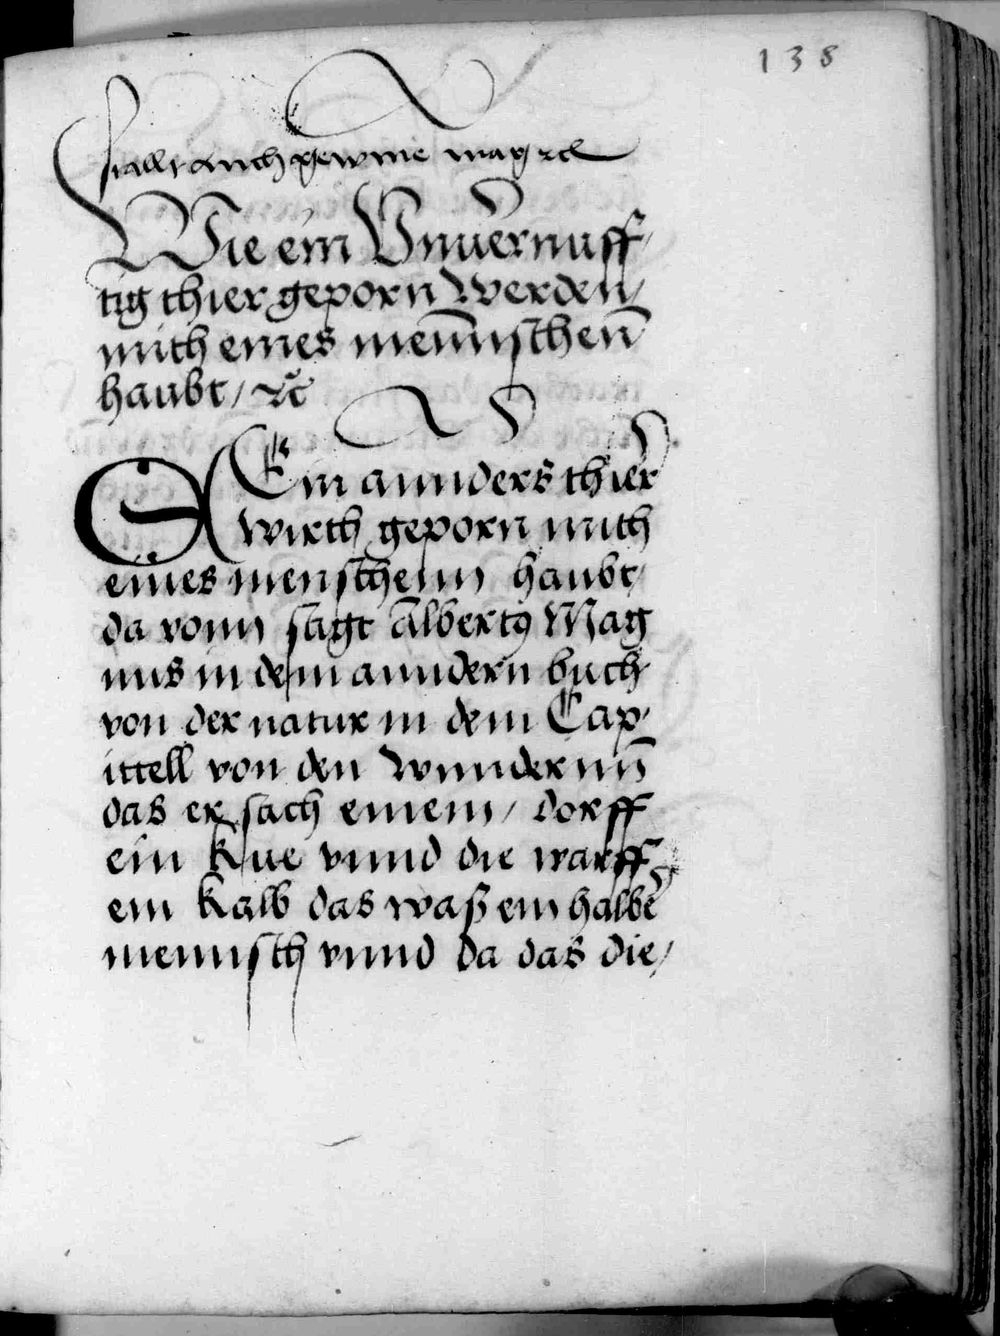 138
auch gewine mag etc
Wie ein Vnuernuff-
tig thier geporn Werden/
mith eines mennischen
haubt/ etc
Ein annders thier
wirth geporn mith
eines menschenn haubt/
da vonn sagt Albertus Mag
nus in dem anndern buch
von der natur in dem Cap-
ittell von den Wundernn
das er sach einem/ dorff
ein Kue vnnd die warff
ein Kalb das waß ein halbe
mennisch vnnd da das die/